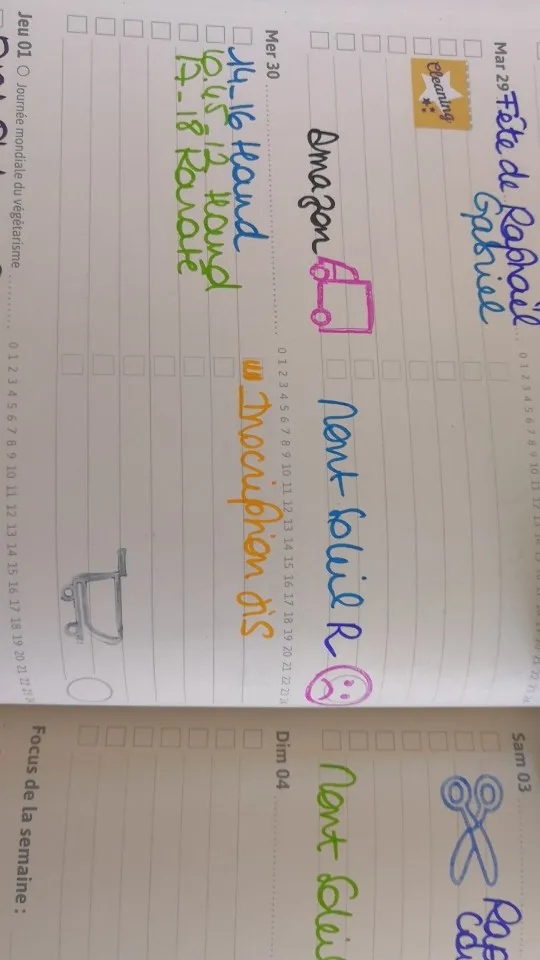 Mar 29 Fête de Raphaël
Gabriel
Cleaning
Amazon
Mont Soleil R
0 1 2 3 4 5 6 7 8 9 10 11 12 13
Mer 30
0 1 2 3 4 5 6 7 8 9 10 11 12 13 14 15 16 17 18 19 20 21 22 23 24
14-16 Hand
!!! Inscription
17-18 Karaté
Jeu 01 Journée mondiale du végétarisme
0 1 2 3 4 5 6 7 8 9 10 11 12 13 14 15 16 17 18 19 20 21 22 23 24
Sam 03
Mont Soleil
Dim 04
Focus de la semaine :